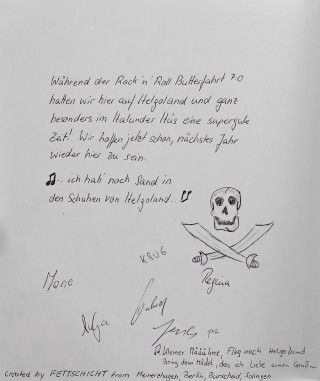 Während der Rock'n'Roll Butterfahrt 7.0
hatten wir hier auf Helgoland und ganz
besonders im Halunder Hüs eine supergute
Zeit! Wir hoffen jetzt schon, nächstes Jahr
wieder hier zu sein.
♫.. ich hab' noch Sand in
den Schuhen von Helgoland...
KRUG
Mone
Regina
Kleiner Määähne, Flieg nach Helgoland
Bring dem Mädel, das ich Liebe einen Gruß
Created by FETTSCHICHT from Meinerzhagen, Berlin, Burscheid, Solingen